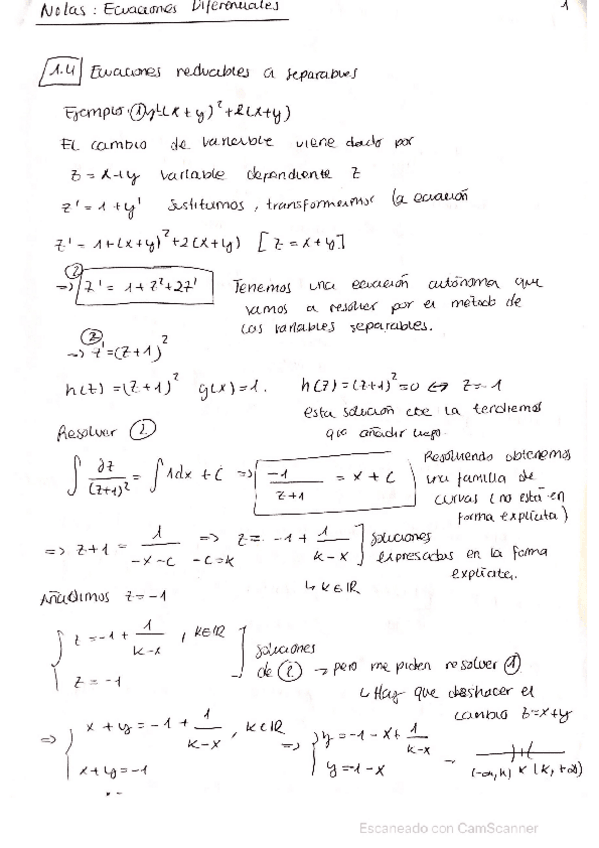 Notas: Ecuaciones Diferenciales 1
1.4 Ecuaciones reducibles a separables
Ejemplo: ① y'=(x+y)²+2(x+y)
El cambio de variable viene dado por
z = x+y variable dependiente z
z' = 1+y' sustituimos, transformamos la ecuación
z' = 1+(x+y)²+2(x+y) [z = x+y]
② => z' = 1+z²+2z' Tenemos una ecuación autónoma que
vamos a resolver por el método de
las variables separables.
② => z'=(z+1)²
h(z) = (z+1)² g(x)=1. h(z)=(z+1)²=0 <-> z=-1
esta solución la tendremos
que añadir luego.
Resolver ②
∫ dz/(z+1)² = ∫ 1dx + C => -1/(z+1) = x + C
Resolviendo obtenemos
una familia de
curvas (no está en
forma explícita)
=> z+1 = 1/(-x-c) -c=k => z = -1 + 1/(k-x) ] soluciones
expresadas en la forma
explícita.
↳ k∈ℝ
Añadimos z=-1
{ z=-1+ 1/(k-x) , k∈ℝ
z = -1
] soluciones
de ② → pero me piden resolver ①
↳ Hay que deshacer el
cambio z=x+y
=> { x+y = -1 + 1/(k-x) , k∈ℝ => { y = -1-x+ 1/(k-x)
x+y=-1 y=-1-x
(-∞,k) k (k,+∞)
Escaneado con CamScanner